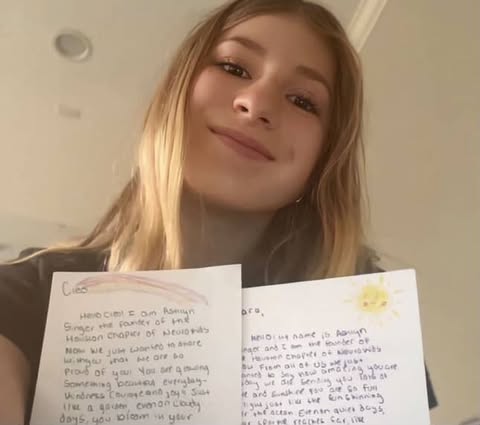 Cleo
Hello Cleo! I am Ashlyn
Singer the founder of the
Houston Chapter of Neurokids
Now we just wanted to share
with you that we are so
proud of you. You are growing
something beautiful everyday-
kindness, courage and joy! Just
like a garden even on cloudy
days, you bloom in your
ara,
Hello! My name is Ashlyn
inger and I am the founder of
e Houston Chapter of Neurokids
ow From all of us we just
anted to say how amazing you are
day we are sending you lots of
e and sunshine you are so full
light just like the sun shinning
r the ocean. Even on quiet days,
r sparkle reaches far like